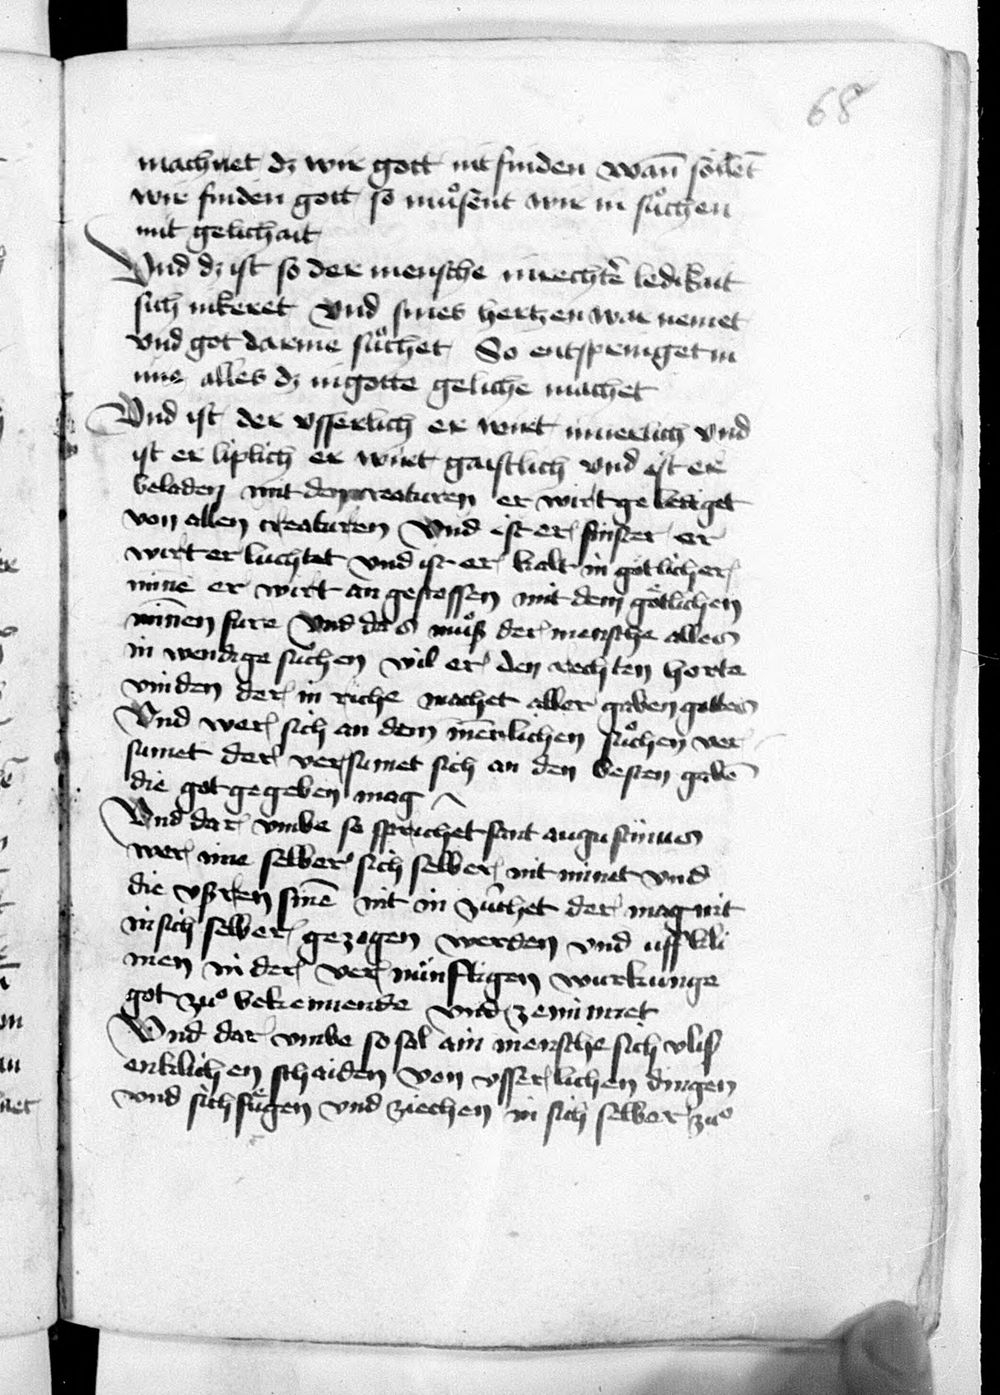 68
machnet dz wir gott nit finden wan̄ söllēt
wir finden gott so muͦsent wir in suͦchen
mit gelichait
Vnd dz ist so der mensche in rechtē ledikait
sich inkeret Vnd sines hertzen war nemet
vnd got dar inne suͦchet So entspringet in
ime alles dz in gotte geliche machet
Vnd ist der vsserlich er wirt innerlich vnd
ist er liplich er wirt gaistlich vnd ist er
beladen mit den creaturen er wirt geledget
von allen creaturen Vnd ist er finster er
wirt erluchtet vnd ist er kalt in götlicher
mine er wirt an gestossen mit dem götlichen
minnen fure Vnd des muͦß der mensche alles
in wendige suͦchen wil er den rechten horte
vinden der in riche machet aller gaben gottes
Vnd wer sich an dem īnerlichen suͦchen ver
sumet der versumet sich an den besten gabē
die got gegeben mag
Vnd dar vmbe so sprichet sant augustinus
wer ime selber sich selber nit minet vnd
die vßren sinē nit in zuͦchet der mag nit
in sich selber gezogen werden vnd uff kli
men in der vernünftigen wurkunge
got zuͦ bekennende vnd ze minnet
Vnd dar vmbe so sol ain mensche sich vlis
enklichen schaiden von vsserlichen dingen
vnd sich fuͤgen vnd ziechen in sich selber zuͦ